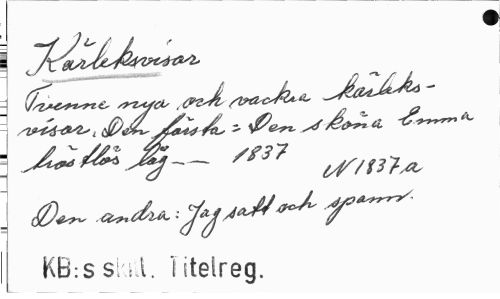 Kärleksvisor
Tvenne nya och vackra kärleks-
visor. Den första = Den sköna Emma
tröstlös låg -- 1837
N 1837 a
Den andra: Jag satt och spann.
KB:s skill. Titelreg.